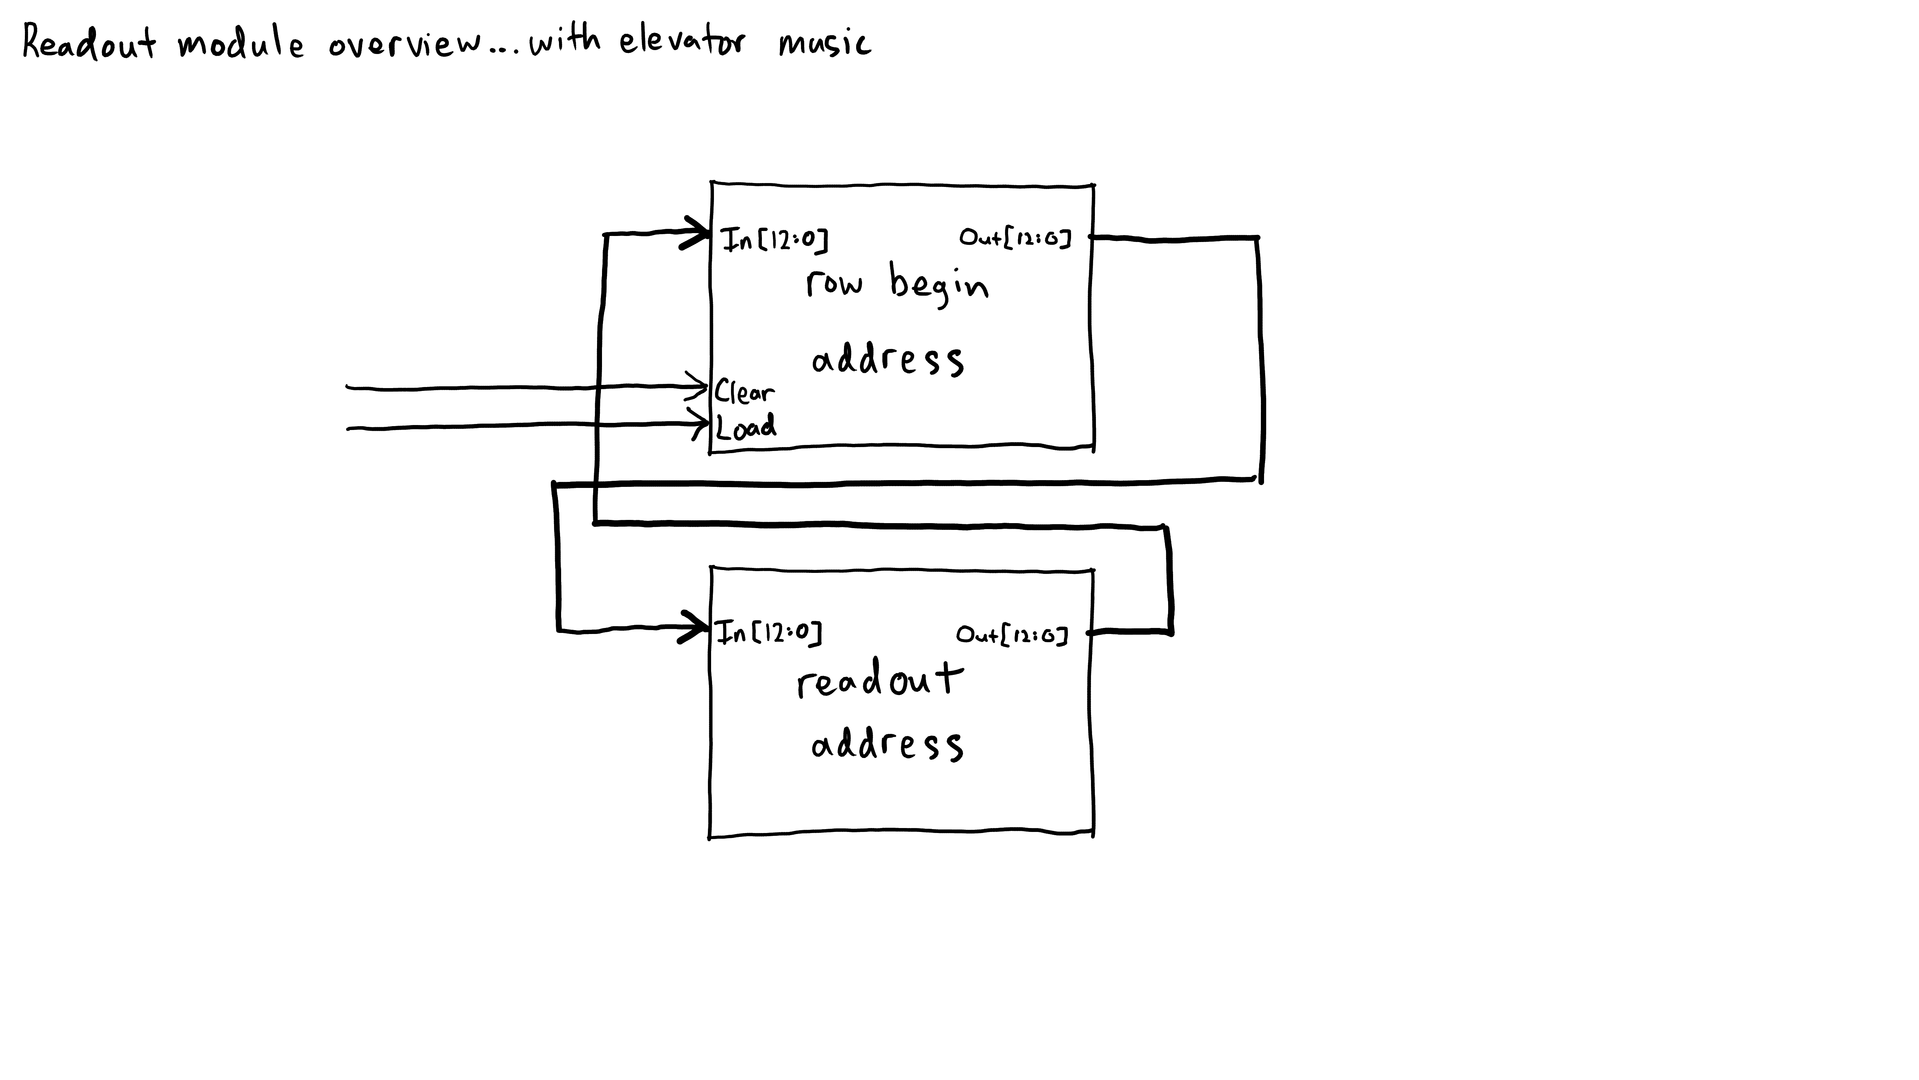 Readout module overview...with elevator music
In[12:0] Out[12:0]
row begin
address
Clear
Load
In[12:0] Out[12:0]
readout
address